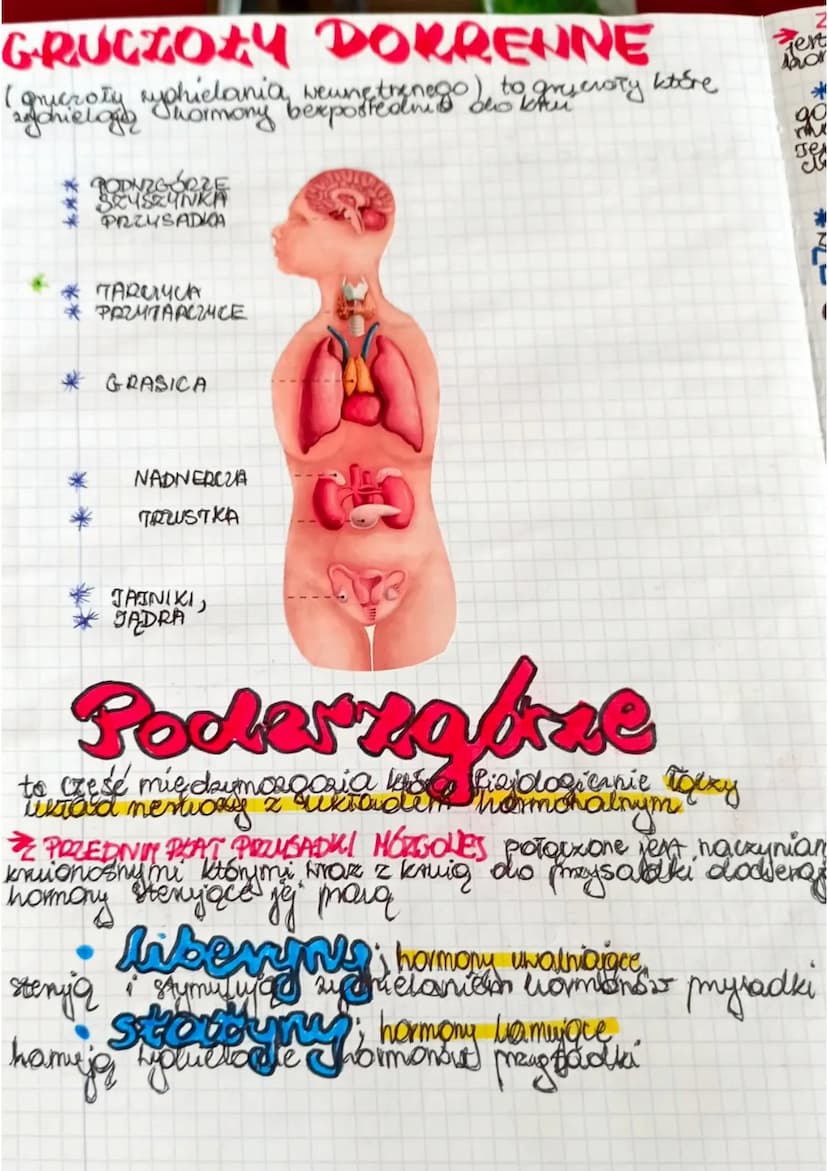 GRUCZOŁY DOKRENNE
(gruczoły wydzielania wewnętrznego) to gruczoły które
wydzielają hormony bezpośrednio do krwi
* PODWZGÓRZE
* SZYSZYNKA
* PRZYSADKA
* TARCZYCA
* PRZYTARCZYCE
* GRASICA
* NADNERCZA
* TRZUSTKA
* JAJNIKI,
* JĄDRA
Podwzgórze
to część międzymózgowia która fizjologicznie łączy
układ nerwowy z układem hormonalnym
→ Z PRZEDNIM PŁAT PRZYSADKI MÓZGOWEJ połączone jest naczyniam
krwionośnymi którymi wraz z krwią do przysadki docierają
hormony sterujące jej pracą
• liberyny; hormony uwalniające,
sterują i stymulują wydzielaniem hormonów przysadki
• statyny; hormony hamujące
hamują wydzielanie hormonów przysadki